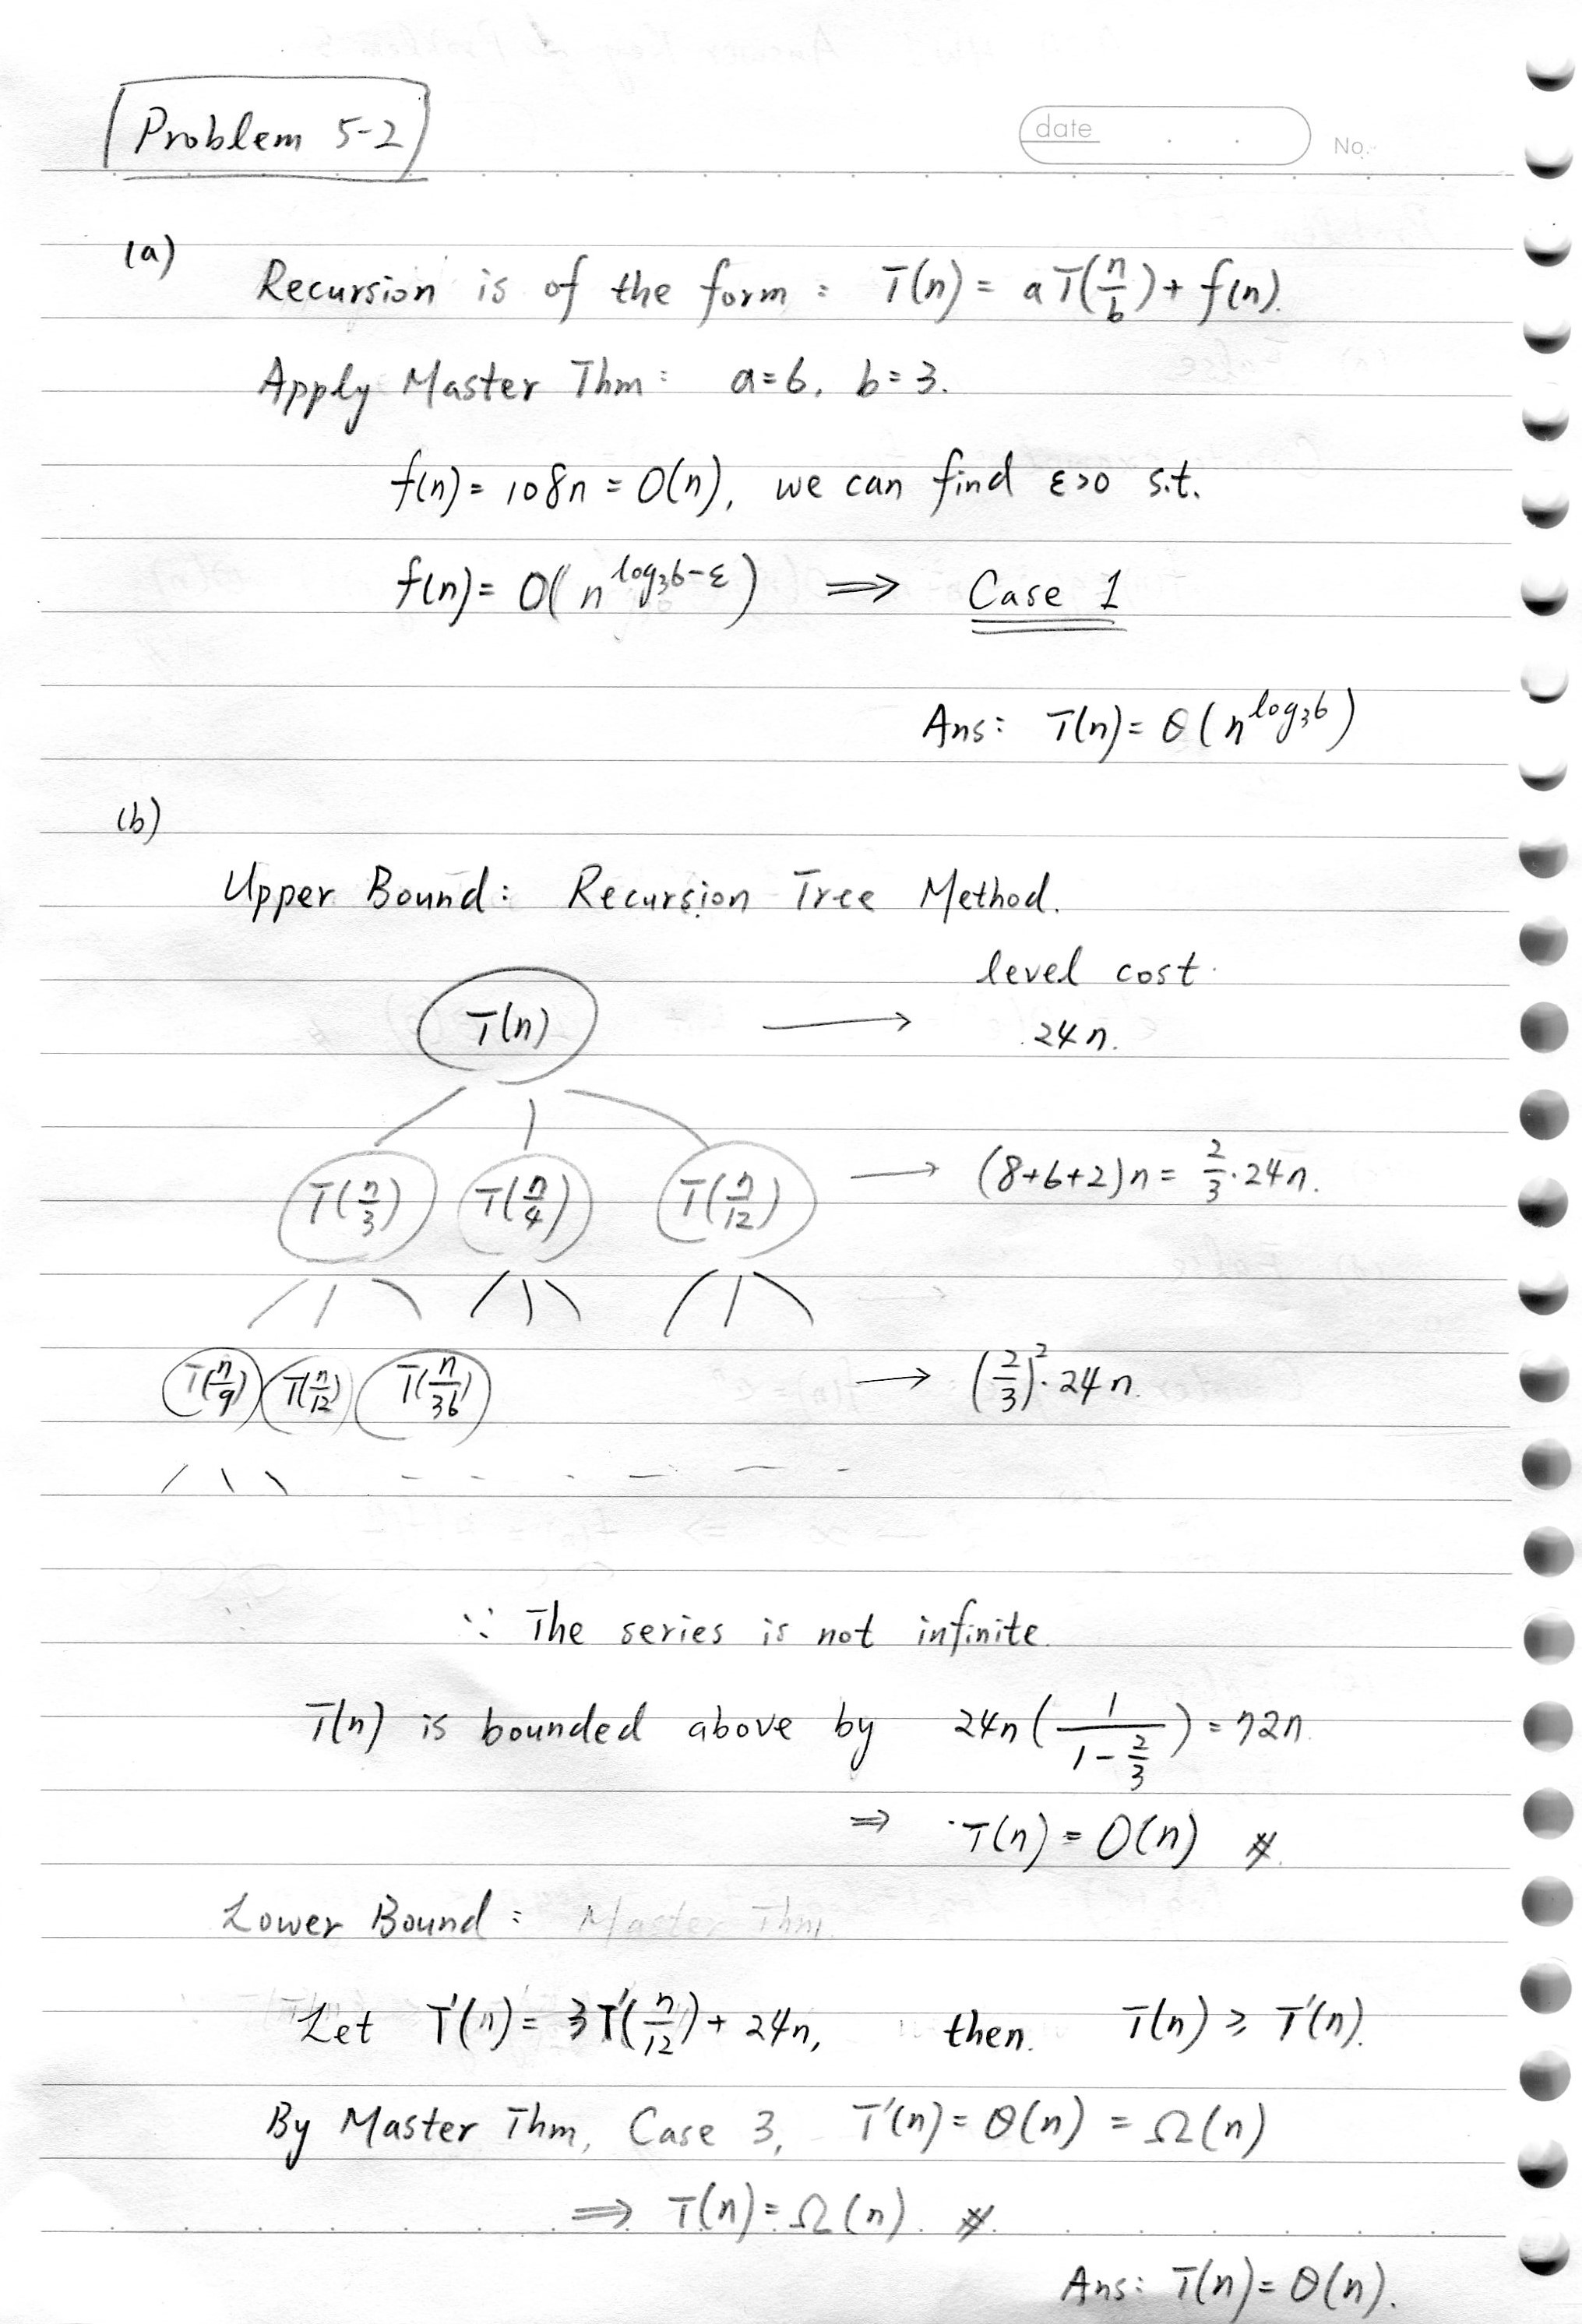 Problem 5-2
date . . No.
(a)
Recursion is of the form : T(n) = aT(n/b) + f(n).
Apply Master Thm : a=6, b=3.
f(n) = 108n = O(n), we can find ε>0 s.t.
f(n) = O(n^{log₃6-ε}) ⟹ Case 1
Ans: T(n) = θ(n^{log₃6})
(b)
Upper Bound : Recursion Tree Method.
level cost.
T(n) → 24n.
T(n/3) T(n/4) T(n/12) → (8+6+2)n = 2/3·24n.
T(n/9) T(n/12) T(n/36) → (2/3)²·24n.
∵ The series is not infinite.
T(n) is bounded above by 24n(1/(1-2/3)) = 72n.
⇒ T(n) = O(n) #.
Lower Bound : Master Thm.
Let T'(n) = 3T'(n/12) + 24n, then. T(n) ≥ T'(n).
By Master Thm, Case 3, T'(n) = θ(n) = Ω(n)
⟹ T(n) = Ω(n). #.
Ans: T(n) = θ(n).